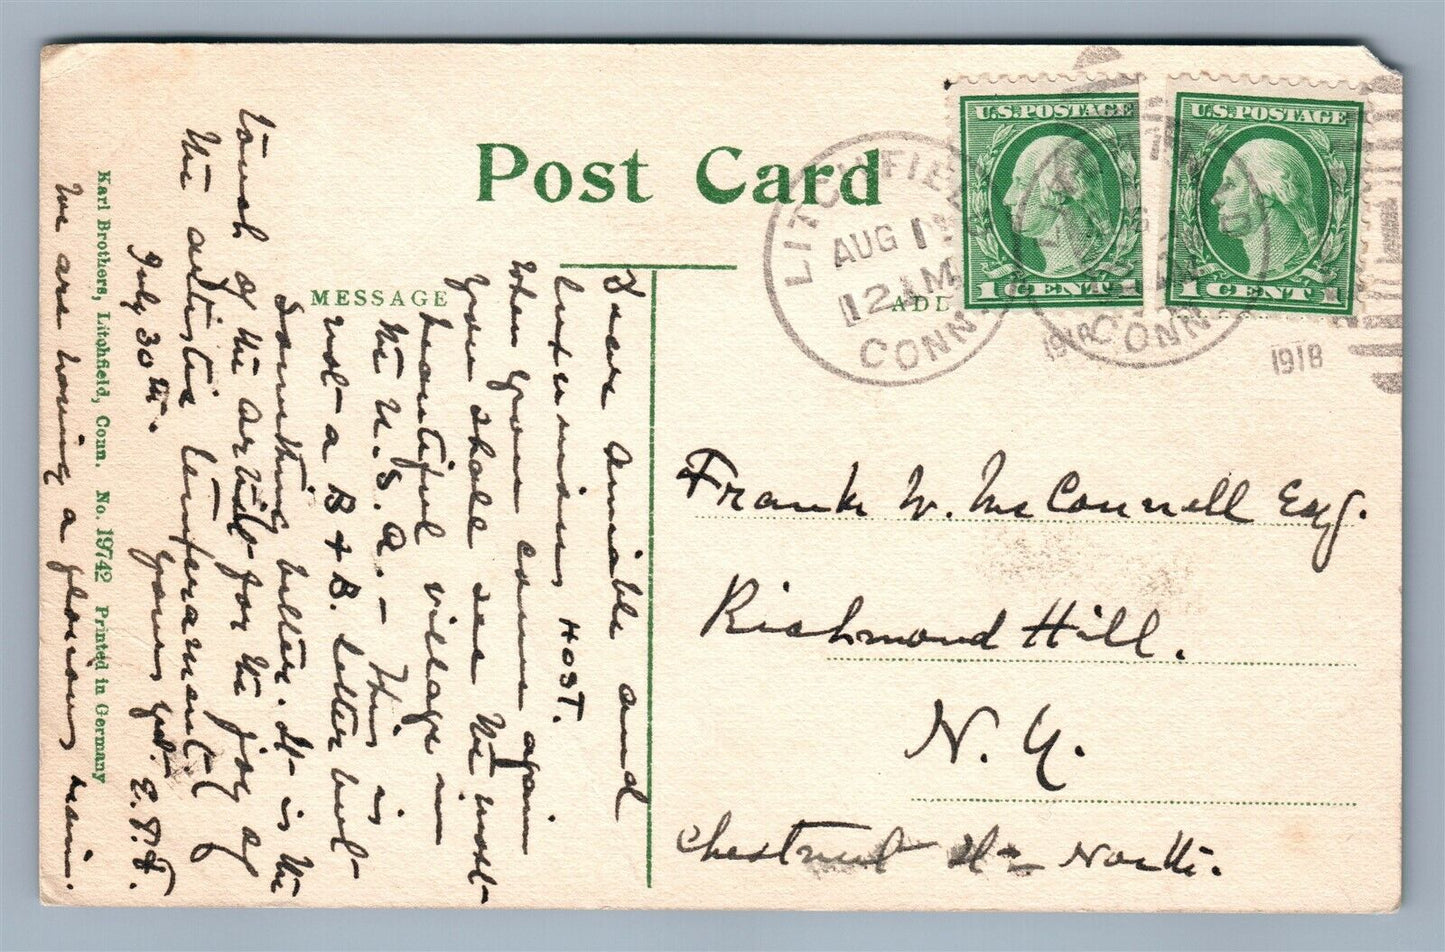 Post Card
MESSAGE
Dear Amiable and
luxurious HOST.
When you come again
you shall see the most
beautiful village in
the U.S.A. - This is
not a B & B. letter but
something better. It is the
touch of the artist for the joy of
the artistic temperament
July 30th. yours yet. E.P.F.
We are having a glorious rain.
Karl Brothers, Litchfield, Conn. No. 19742 Printed in Germany
LITCHFIELD
AUG 1
12 AM
CONN.
1918
U.S. POSTAGE
1 CENT 1
U.S. POSTAGE
1 CENT 1
CONN.
1918
Frank W. McConnell Esq.
Richmond Hill.
N. Y.
Chestnut North.